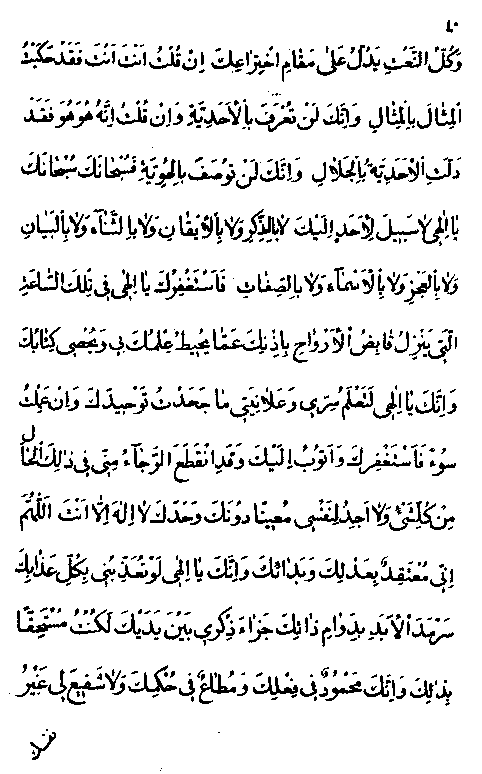 ٤٠
وَكُلّ النَّعْتِ يَدُلّ عَلىٰ مَقٰامِ اخْتِرٰاعِكَ اِنْ قُلْتُ اَنْتَ اَنْتَ فَقَدْ حَكَيْتُ
الْمِثٰالَ بِالْمِثٰالِ وَاِنَّكَ لَنْ تُعْرَفَ بِالْاَحَدِيَّةِ وَاِنْ قُلْتُ اِنَّهُ هُوَ هُوَ فَقَدْ
دَلَّتِ الْاَحَدِيَّةُ بِالْجَلٰالِ وَاِنَّكَ لَنْ تُوصَفَ بِالْهُوِيَّةِ فَسُبْحٰانَكَ سُبْحٰانَكَ
يٰا اِلٰهِي لٰا سَبِيلَ لِاَحَدٍ اِلَيْكَ لٰا بِالذِّكْرِ وَلٰا بِالْاِيقٰانِ وَلٰا بِالثَّنٰاءِ وَلٰا بِالْبَيٰانِ
وَلٰا بِالْعَجْزِ وَلٰا بِالْاَسْمٰاءِ وَلٰا بِالصِّفٰاتِ فَاَسْتَغْفِرُكَ يٰا اِلٰهِي فِي تِلْكَ السّٰاعَةِ
الَّتِي يَنْزِلُ قٰابِضُ الْاَرْوٰاحِ بِاِذْنِكَ عَمّٰا يُحِيطُ عِلْمُكَ بِي وَيُحْصِي كِتٰابُكَ
وَاِنَّكَ يٰا اِلٰهِي لَتَعْلَمُ سِرِّي وَعَلٰانِيَتِي مٰا جَحَدْتُ تَوْحِيدَكَ وَاِنْ عَمِلْتُ
سُوءً فَاَسْتَغْفِرُكَ وَاَتُوبُ اِلَيْكَ وَقَدِ انْقَطَعَ الرَّجٰاءُ مِنِّي فِي ذٰلِكَ الْحٰالِ
مِنْ كُلِّ شَيْءٍ وَلٰا اَجِدُ لِنَفْسِي مُعِينًا دُونَكَ وَحْدَكَ لٰا اِلٰهَ اِلّٰا اَنْتَ اَللّٰهُمَّ
اِنِّي مُعْتَقِدٌ بِعَدْلِكَ وَبَدٰائِكَ وَاِنَّكَ يٰا اِلٰهِي لَوْ تُعَذِّبُنِي بِكُلِّ عَذٰابِكَ
سَرْمَدَ الْاَبَدِ بِدَوٰامِ ذٰاتِكَ جَزٰاءَ ذِكْرِي بَيْنَ يَدَيْكَ لَكُنْتُ مُسْتَحِقًّا
بِذٰلِكَ وَاِنَّكَ مَحْمُودٌ فِي فِعْلِكَ وَمُطٰاعٌ فِي حُكْمِكَ وَلٰا شَفِيعَ لِي غَيْرُ